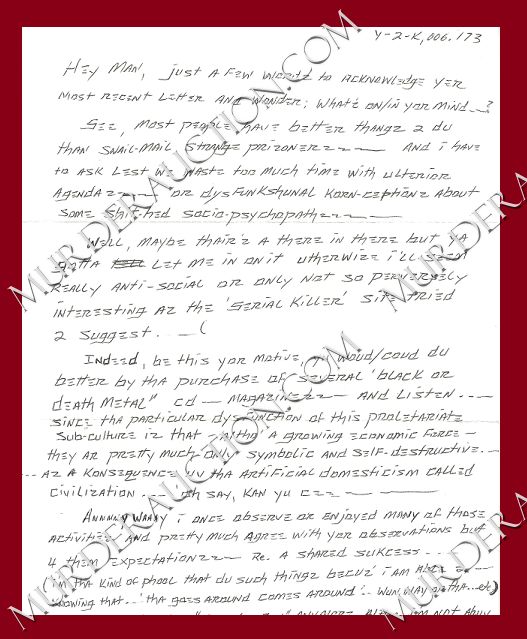 Y-2-K, 006.173
HEY MAN, JUST A FEW WORDZ TO ACKNOWLEDGE YER
MOST RECENT LETTER AND WONDER; WHAT'Z ON/IN YOR MIND---?
SEE, MOST PEOPLE HAVE BETTER THANGZ 2 DU
THAN SNAIL-MAIL STRANGE PRIZONERZ--- AND I HAVE
TO ASK LEST WE WASTE TOO MUCH TIME WITH ULTERIOR
AGENDAZ--- OR DYSFUNKSHUNAL KORN-CEPTIONZ ABOUT
SOME SHIT-HED SOCIO-PSYCHOPATH---
WELL, MAYBE THAIR'Z A THERE IN THERE BUT YA
GOTTA LET ME IN ON IT UTHERWIZE I'LL SEEM
REALLY ANTI-SOCIAL OR ONLY NOT SO PERVERSELY
INTERESTING AZ THE 'SERIAL KILLER' SITE TRIED
2 SUGGEST. --(
INDEED, BE THIS YOR MOTIVE, WOUD/COUD DU
BETTER BY THA PURCHASE OF SEVERAL 'BLACK OR
DEATH METAL" CD -- MAGAZINEZ--- AND LISTEN....
SINCE THA PARTICULAR DYSFUNCTION OF THIS PROLETARIATE
SUB-CULTURE IZ THAT A GROWING ECONOMIC FORCE -
THEY AR PRETTY MUCH ONLY SYMBOLIC AND SELF-DESTRUCTIVE.--
--- AZ A KONSEQUENCE UV THA ARTIFICIAL DOMESTICISM CALLED
CIVILIZATION.--- OH SAY, KAN YU CZZ ---
ANNNNY WAAAY I ONCE OBSERVE OR ENJOYED MANY OF THOSE
ACTIVITIES AND PRETTY MUCH AGREE WITH YOR OBSERVATIONS BUT
4 THEM EXPECTATIONZ--- RE. A SHARED SUKCESS...
I'M THA KIND OF PHOOL THAT DU SUCH THINGZ BECUZ' I AM
KNOWING THAT.. 'THA GOES AROUND COMES AROUND'.. WUN WAY OR THA...etc)
ANYMORE
MURDERAUCTION.COM
MURDERAUCTION.COM
MURDERAUCTION.COM
MURDERAUCTION.COM